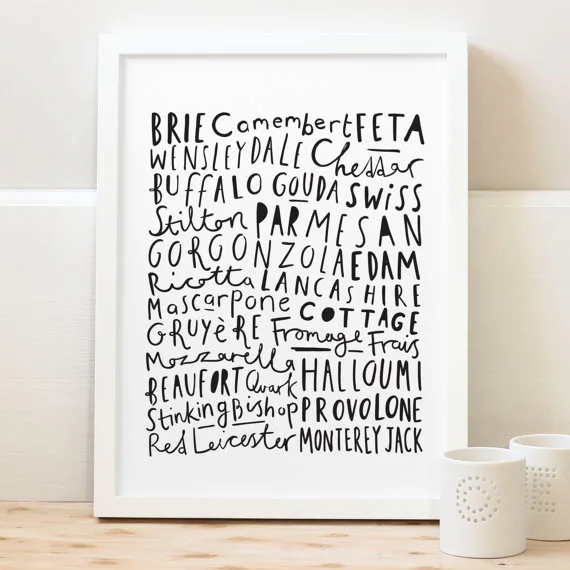 BRIE Camembert FETA
WENSLEYDALE Cheddar
BUFFALO GOUDA SWISS
Stilton PARMESAN
GORGONZOLA EDAM
Ricotta LANCASHIRE
Mascarpone COTTAGE
GRUYèRE Fromage Frais
Mozzarella HALLOUMI
BEAUFORT Quark
Stinking Bishop PROVOLONE
Red Leicester MONTEREY JACK
C E